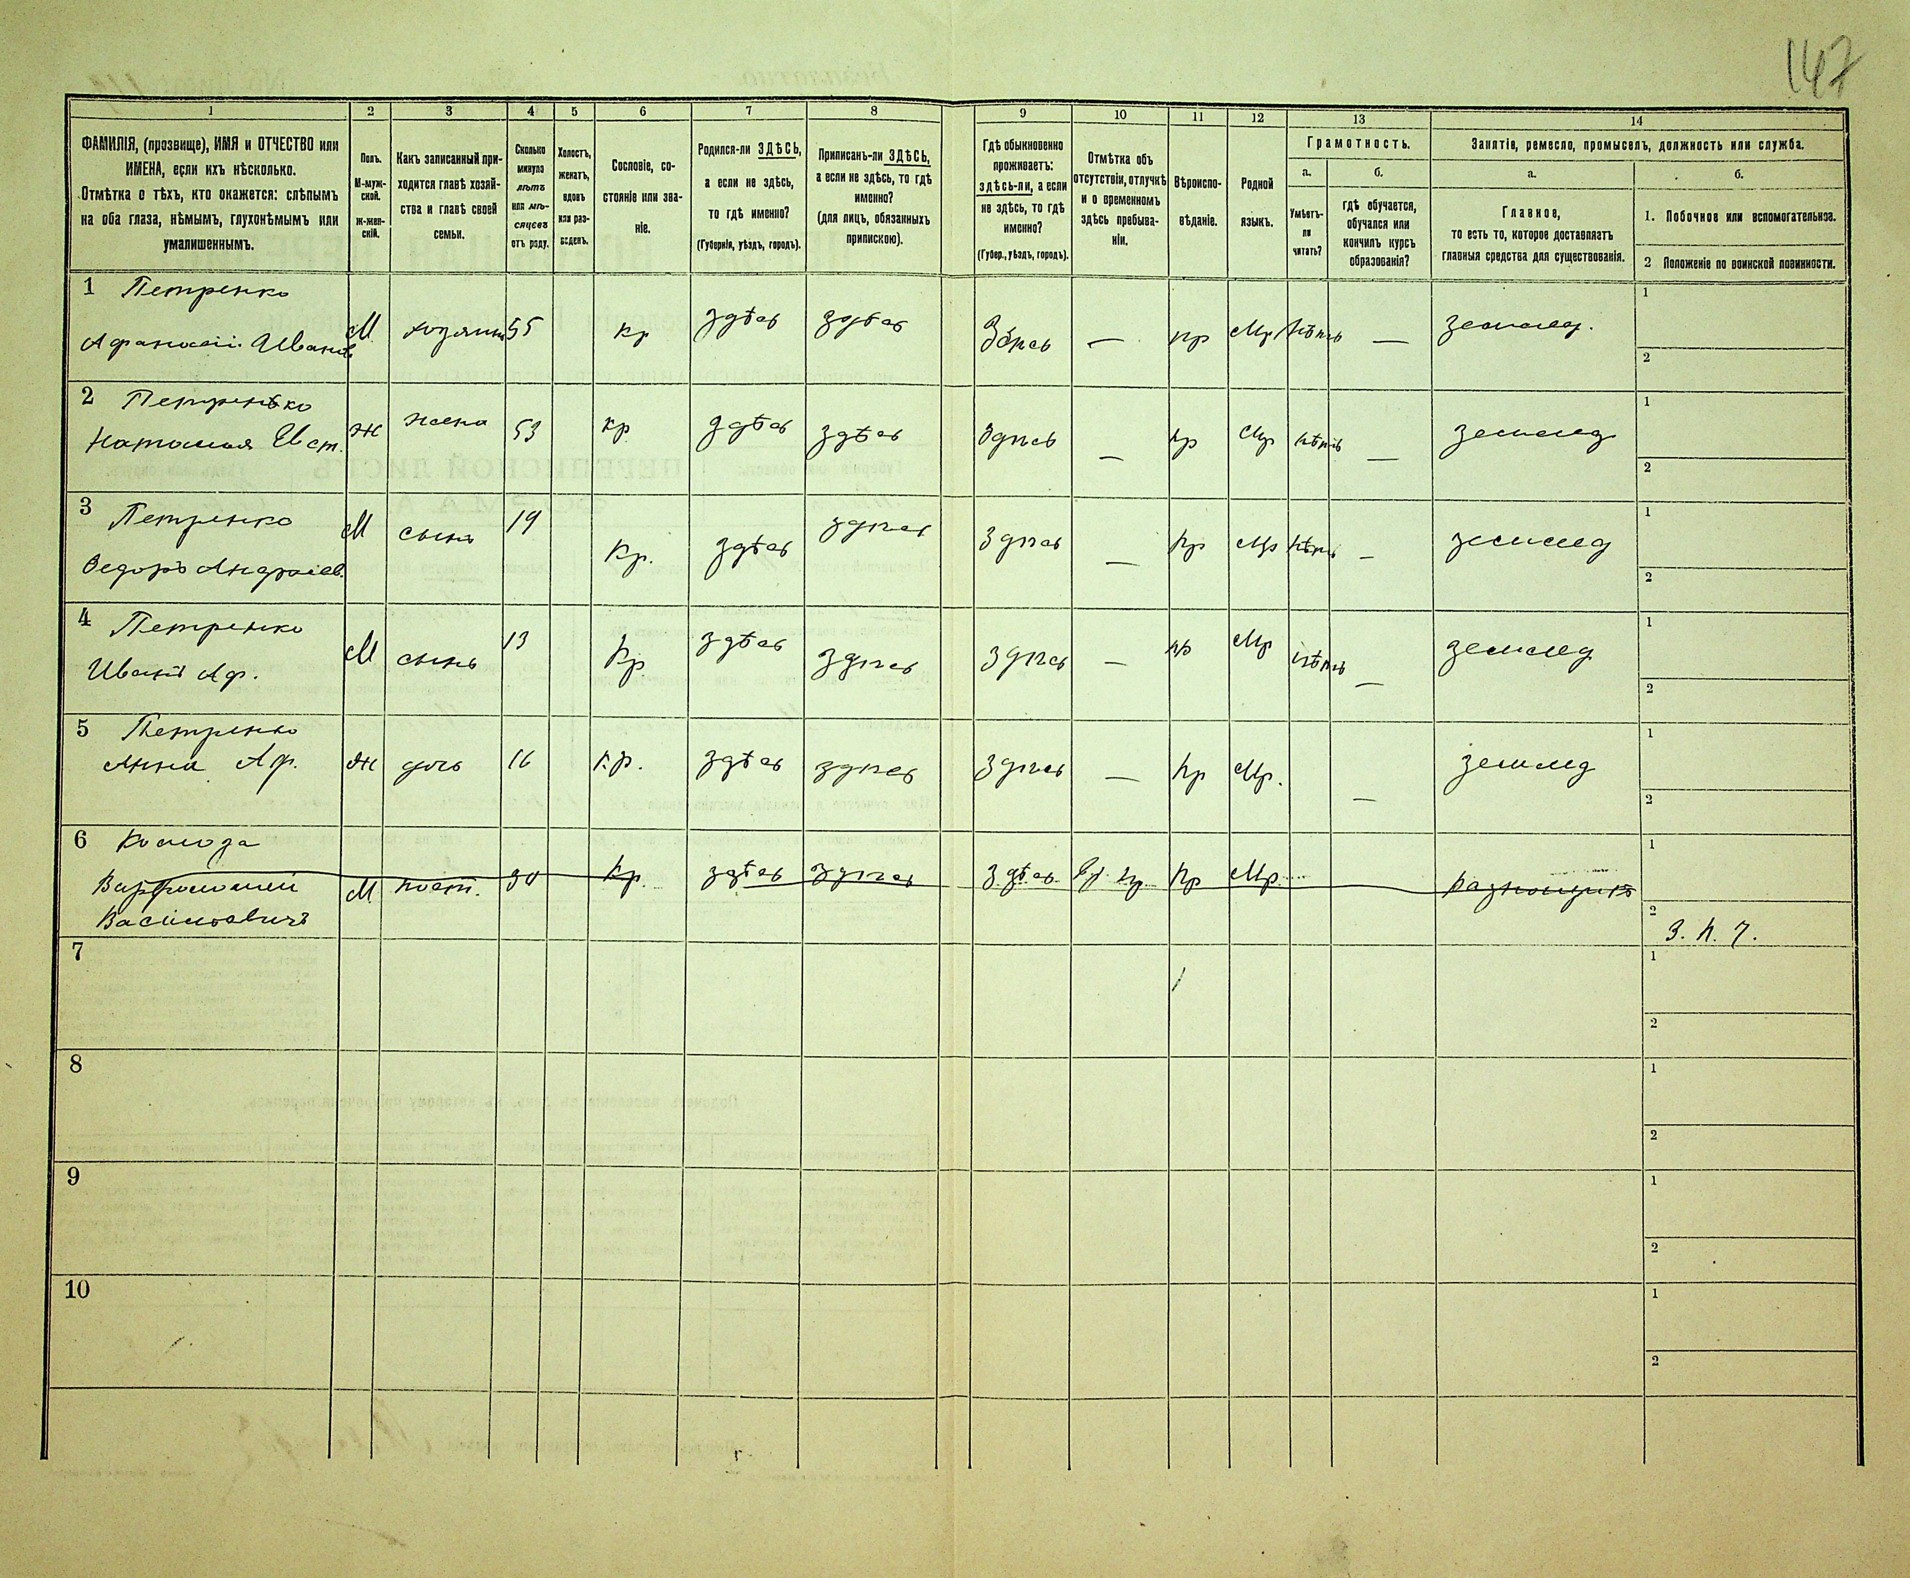 147
1 2 3 4 5 6 7 8 9 10 11 12 13 14
ФАМИЛІЯ, (прозвище), ИМЯ и ОТЧЕСТВО или
ИМЕНА, если ихъ нѣсколько.
Отмѣтка о тѣхъ, кто окажется: слѣпымъ
на оба глаза, нѣмымъ, глухонѣмымъ или
умалишеннымъ.
Полъ.
М-муж-
ской.
Ж-жен-
скій.
Какъ записанный при-
ходится главѣ хозяй-
ства и главѣ своей
семьи.
Сколько
минуло
лѣтъ
или мѣ-
сяцевъ
отъ роду.
Холостъ,
женатъ,
вдовъ
или раз-
веденъ.
Сословіе, со-
стояніе или зва-
ніе.
Родился-ли ЗДѢСЬ,
а если не здѣсь,
то гдѣ именно?
(Губернія, уѣздъ, городъ).
Приписанъ-ли ЗДѢСЬ,
а если не здѣсь, то гдѣ
именно?
(для лицъ, обязанныхъ
припискою).
Гдѣ обыкновенно
проживаетъ:
здѣсь-ли, а если
не здѣсь, то гдѣ
именно?
(Губер., уѣздъ, городъ).
Отмѣтка объ
отсутствіи, отлучкѣ
и о временномъ
здѣсь пребыва-
ніи.
Вѣроиспо-
вѣданіе.
Родной
языкъ.
Грамотность.
а. б.
Умѣетъ-
ли
читать?
гдѣ обучается,
обучался или
кончилъ курсъ
образованія?
Занятіе, ремесло, промыселъ, должность или служба.
а. б.
Главное,
то есть то, которое доставляетъ
главныя средства для существованія.
1. Побочное или вспомогательное.
2 Положеніе по воинской повинности.
1 Петренко
Афанасій Иванов М хозяинъ 55 кр здѣсь здѣсь здѣсь — пр Мр нѣтъ — землед. 1 2
2 Петренко
Наталія Евст. ж жена 53 кр здѣсь здѣсь здѣсь — пр Мр нѣтъ — землед 1 2
3 Петренко
Ѳедоръ М сынъ 19 кр. здѣсь здѣсь здѣсь — пр Мр нѣтъ — землед 1 2
4 Петренко
Иванъ Аф. М сынъ 13 кр здѣсь здѣсь здѣсь — пр Мр нѣтъ — землед 1 2
5 Петренко
Анна Аф. ж дочь 16 кр. здѣсь здѣсь здѣсь — пр Мр. — землед 1 2
6
Варфоломей М 30 кр. здѣсь здѣсь здѣсь пр Мр. 1 2
Васильевичъ
7 1 2
8 1 2
9 1 2
10 1 2